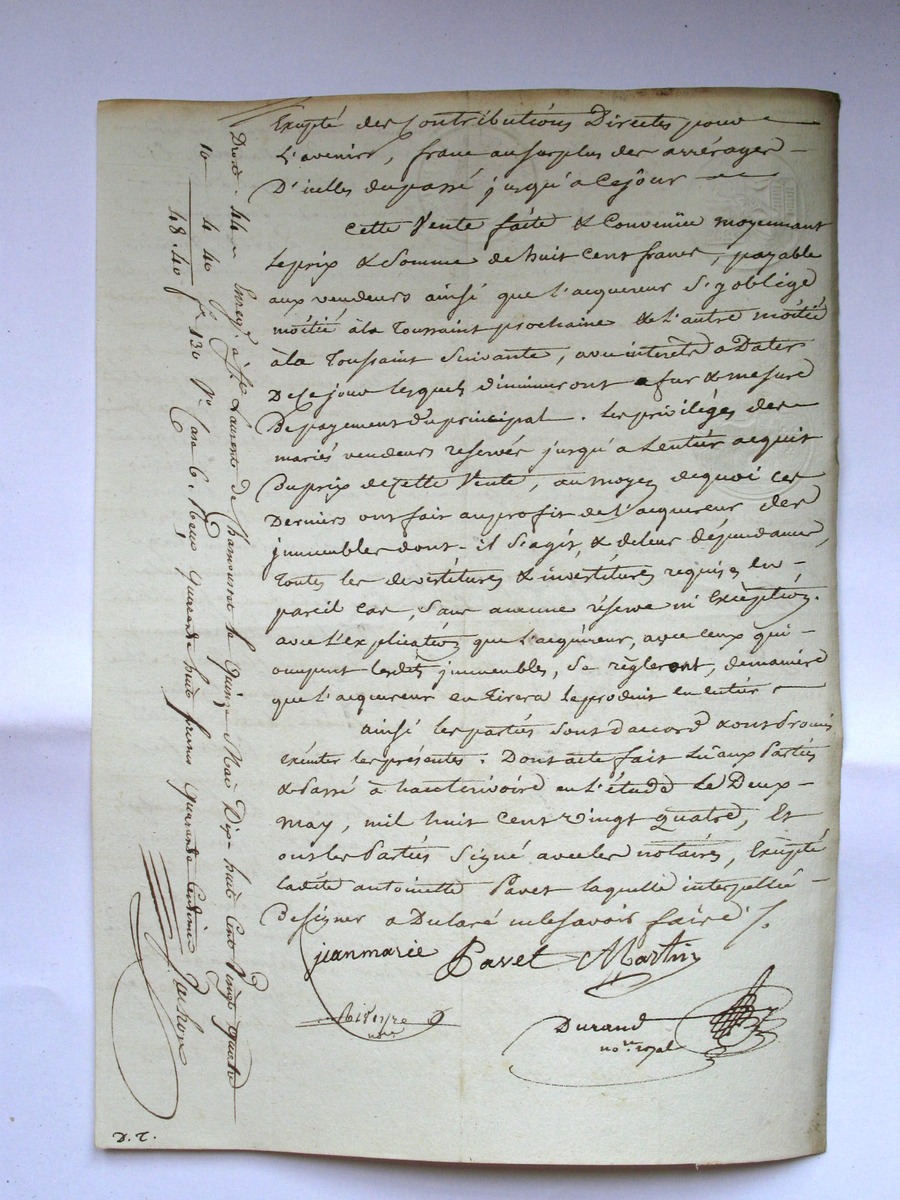 Excepté des Contributions Directes pour
L'avenir, franc au surplus des arrérages
D'icelles du passé jusqu'a Ce jour
Cette Vente faite & Convenüe moyennant
le prix & Somme de huit cent francs, payable
aux vendeurs ainsi que l'acquereur S'y oblige
moitié à la Toussaint prochaine & l'autre moitié
à la Toussaint Suivante, avec interets a Dater
De Ce jour lesquels diminueront a fur & mesure
De payement du principal. Les privilèges des
mariés vendeurs reservés jusqu'a L'entier acquit
Du prix de Cette Vente, au moyen de quoi Ces
Derniers ont fait au profit de l'acquereur des
jmmeubles dont il S'agit, & de leur dépendances,
Toutes les devestitures & investitures requises en
pareil cas, Sans aucune réserve ni Exception.
avec L'explication que l'acquéreur, avec ceux qui
occupent lesdits jmmeubles, Se règleront, de maniere
que l'acquereur en tirera le produit en entier
ainsi les parties Sont d'accord & ont Promis
exécuter les présentes. Dont acte fait Lu aux Parties
& Passé à hauterivoire en L'étude Le Deux
may, mil huit Cent vingt quatre, Et
ont les Parties Signé avec les notaires, Excepté
ladite antoinette Pavet laquelle interpellée
De signer a Declaré ne le Savoir faire
jean marie Pavet Martin
nore
Durand
nore royal
Droit. 44 Enregé à St Laurent de Chamousset le Quinze Mai Dix huit Cent Vingt quatre
10 4 40
48.40 fo 130 Vo Case 6. Reçu quarante huit francs quarante Centimes
D.T.